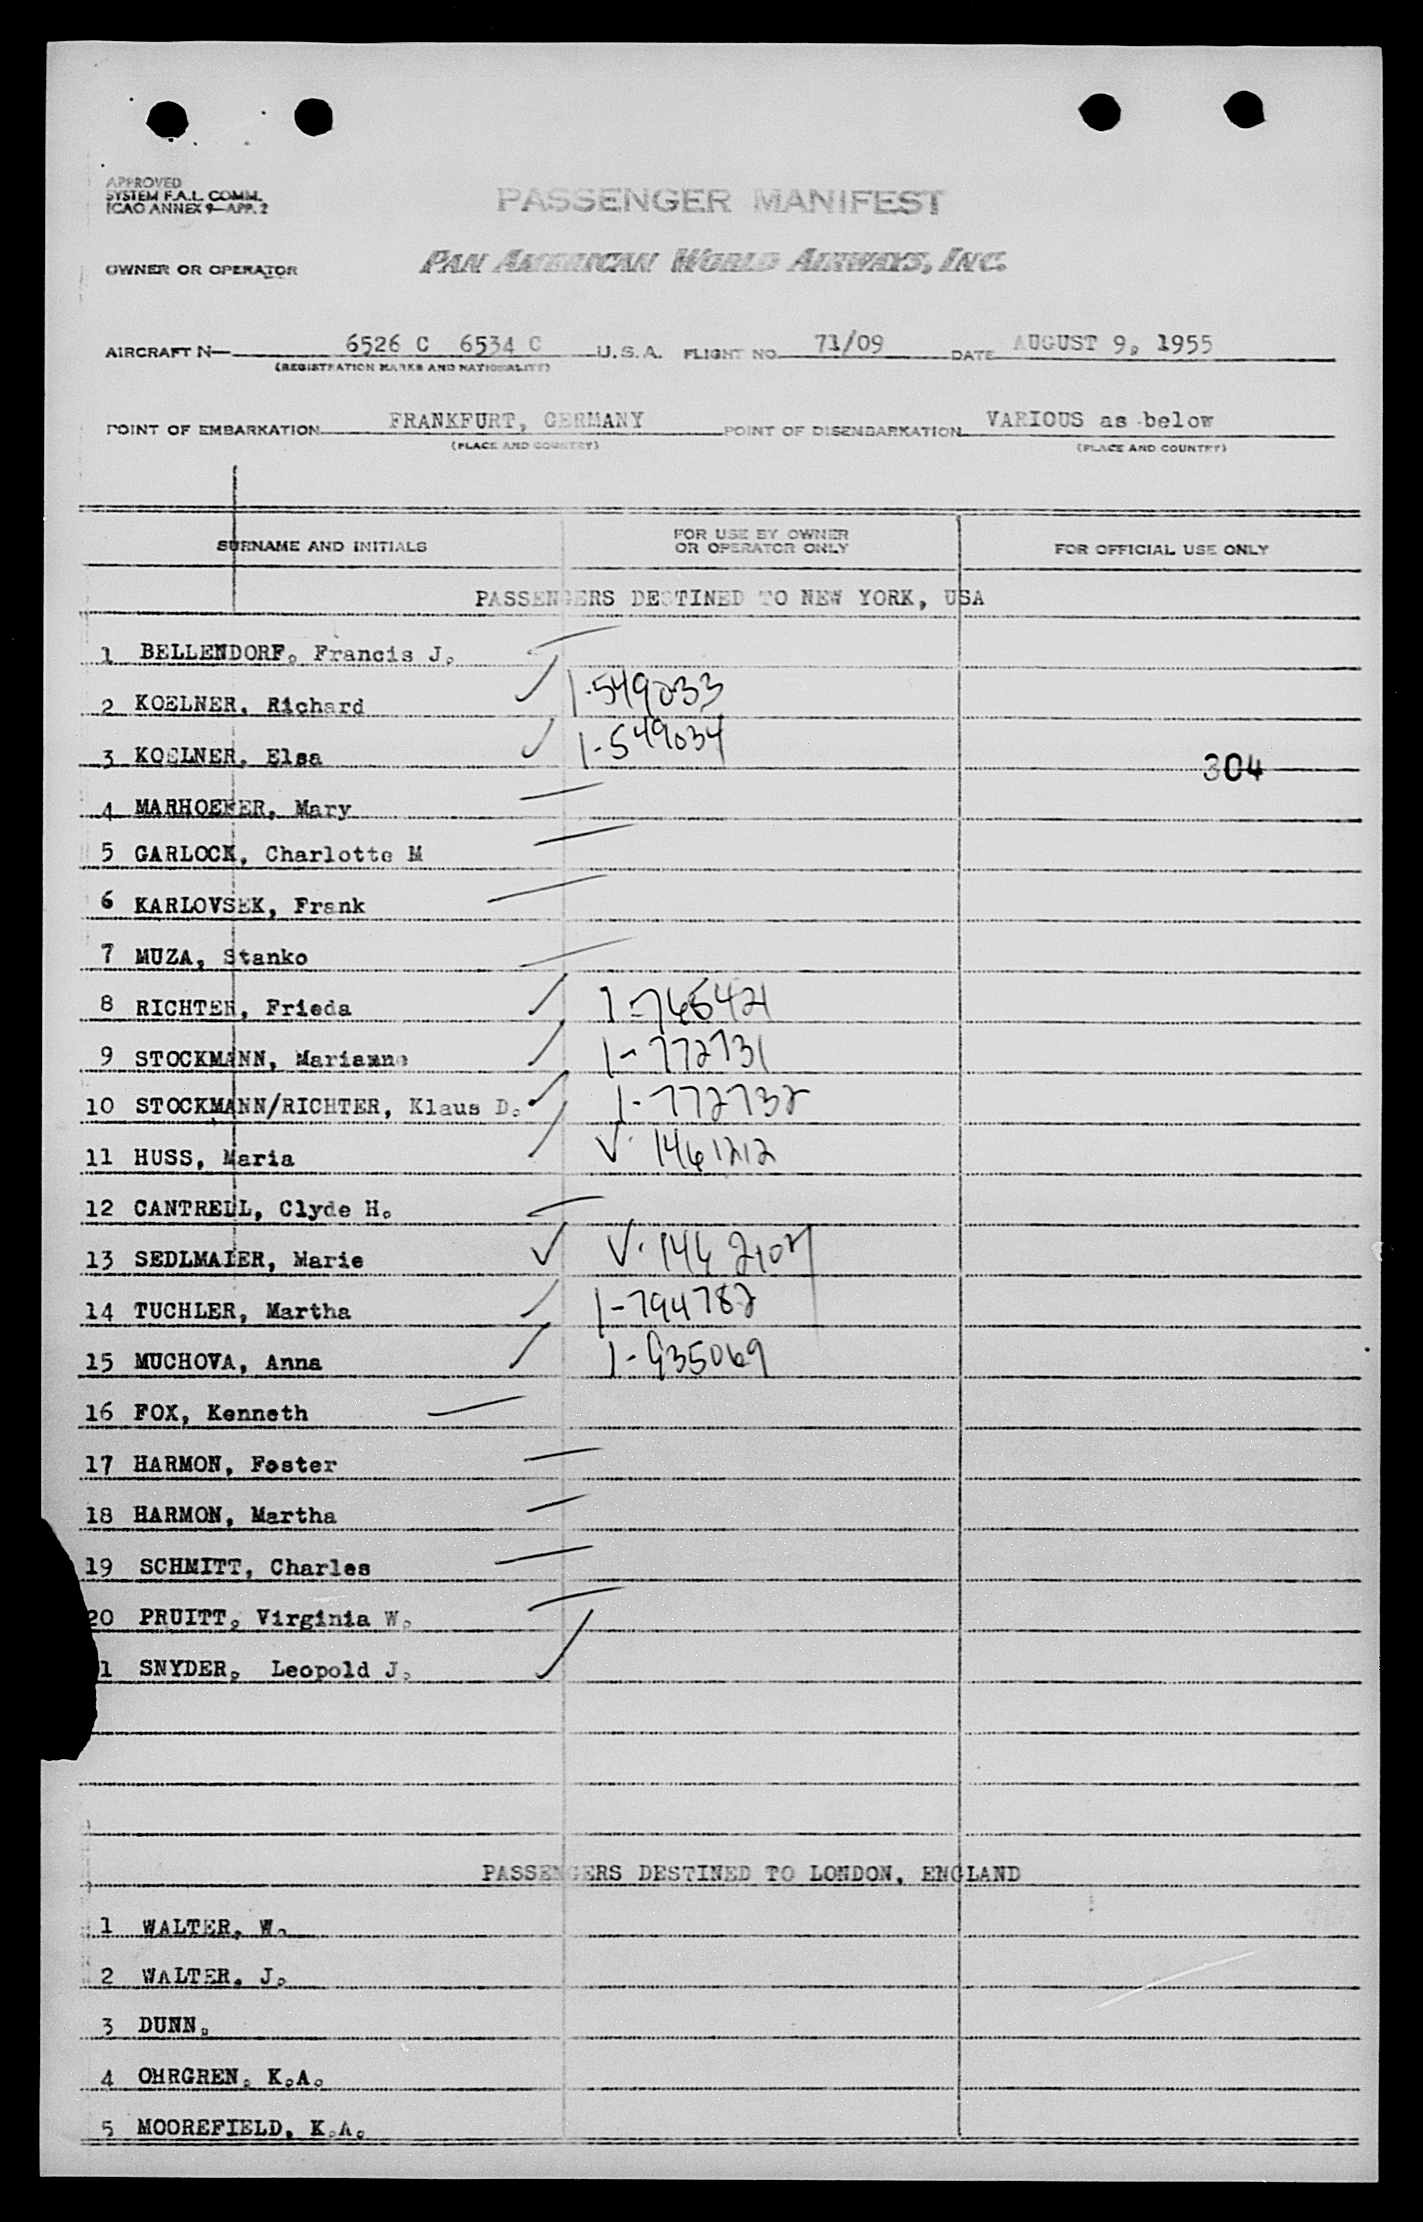 APPROVED
SYSTEM F.A.L. COMM.
ICAO ANNEX 9—APP. 2
PASSENGER MANIFEST
OWNER OR OPERATOR PAN AMERICAN WORLD AIRWAYS, INC.
AIRCRAFT N— 6526 C 6534 C U.S.A. FLIGHT NO. 71/09 DATE AUGUST 9, 1955
(REGISTRATION MARKS AND NATIONALITY)
POINT OF EMBARKATION FRANKFURT, GERMANY POINT OF DISEMBARKATION VARIOUS as below
(PLACE AND COUNTRY) (PLACE AND COUNTRY)
SURNAME AND INITIALS FOR USE BY OWNER OR OPERATOR ONLY FOR OFFICIAL USE ONLY
PASSENGERS DESTINED TO NEW YORK, USA
1 BELLENDORF, Francis J.
2 KOELNER, Richard 1-549033
3 KOELNER, Elsa 1-549034 304
4 MARHOEFER, Mary
5 GARLOCK, Charlotte M
6 KARLOVSEK, Frank
7 MUZA, Stanko
8 RICHTER, Frieda 1-765421
9 STOCKMANN, Marianne 1-772731
10 STOCKMANN/RICHTER, Klaus D. 1-772732
11 HUSS, Maria V-1461212
12 CANTRELL, Clyde H.
13 SEDLMAIER, Marie V-146
14 TUCHLER, Martha 1-794782
15 MUCHOVA, Anna 1-935069
16 FOX, Kenneth
17 HARMON, Foster
18 HARMON, Martha
19 SCHMITT, Charles
20 PRUITT, Virginia W.
1 SNYDER, Leopold J.
PASSENGERS DESTINED TO LONDON, ENGLAND
1 WALTER, W.
2 WALTER, J.
3 DUNN.
4 OHRGREN, K.A.
5 MOOREFIELD, K.A.